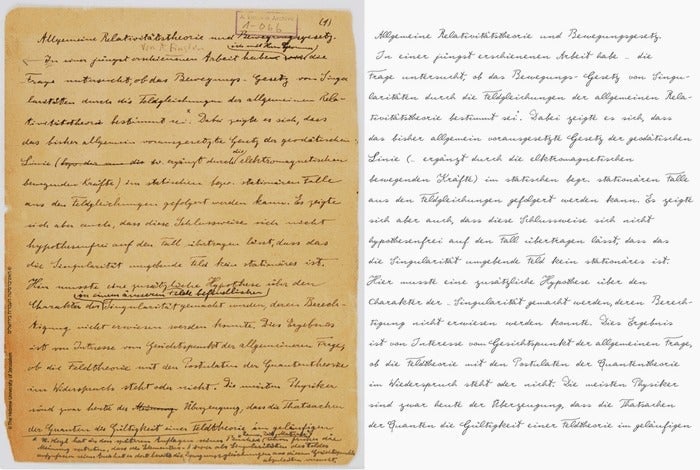 (1)
A. Einstein Archive
1-066
Allgemeine Relativitätstheorie und Bewegungsgesetz.
Von A. Einstein
In einer jüngst erschienenen Arbeit haben die
Frage untersucht, ob das Bewegungs-Gesetz von Singu-
laritäten durch die Feldgleichungen der allgemeinen Rela-
tivitätstheorie bestimmt sei. Dabei zeigte es sich, dass
das bisher allgemein vorausgesetzte Gesetz der geodätischen
Linie (ergänzt durch die elektromagnetischen
bewegenden Kräfte) im statischen bezw. stationären Falle
aus den Feldgleichungen gefolgert werden kann. Es zeigte
sich aber auch, dass diese Schlussweise sich nicht
hypothesenfrei auf den Fall übertragen lässt, dass das
die Singularität umgebende Feld kein stationäres ist.
Hier musste eine zusätzliche Hypothese über den
in einem äusseren Felde befindlichen
Charakter der Singularität gemacht werden, deren Berech-
tigung nicht erwiesen werden konnte. Dies Ergebnis
ist von Interesse vom Gesichtspunkt der allgemeinen Frage,
ob die Feldtheorie mit den Postulaten der Quantentheorie
im Widerspruch steht oder nicht. Die meisten Physiker
sind zwar heute der Überzeugung, dass die Thatsachen
der Quanten die Gültigkeit einer Feldtheorie im geläufigen
© The Hebrew University of Jerusalem
Allgemeine Relativitätstheorie und Bewegungsgesetz.
In einer jüngst erschienenen Arbeit habe - die
Frage untersucht, ob das Bewegungs- Gesetz von Singu-
laritäten durch die Feldgleichungen der allgemeinen Rela-
tivitätstheorie bestimmt sei. Dabei zeigte es sich, dass
das bisher allgemein vorausgesetzte Gesetz der geodätischen
Linie (.. ergänzt durch die elektromagnetischen
bewegenden Kräfte) im statischen begr. stationären Falle
aus den Feldgleichungen gefolgert werden kann. Es zeigte
sich aber auch, dass diese Schlussweise sich nicht
hypothesenfrei auf den Fall übertragen lässt, dass das
die Singularität umgebende Feld kein stationäres ist.
Hier musste eine zusätzliche Hypothese über den
Charakter der - Singularität gemacht werden, deren Berech-
tigung nicht erwiesen werden konnte. Dies Ergebnis
ist von Interesse vom Gesichtspunkt der allgemeinen Frage,
ob die Feldtheorie mit den Postulaten der Quantentheorie
im Wiederspruch steht oder nicht. Die meisten Physiker
sind zwar heute der Überzeugung, dass die Thatsachen
der Quanten die Gültigkeit einer Feldtheorie im geläufigen